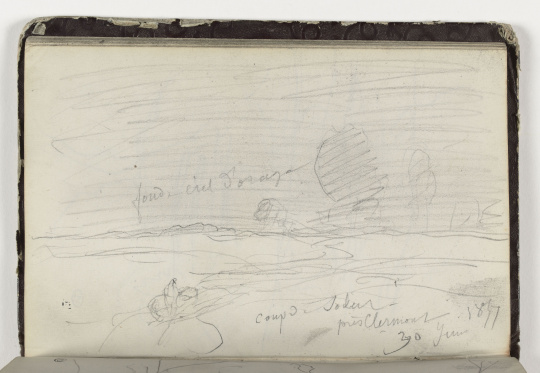 fond. ciel d'orage
coup de soleil
près Clermont
30 Juin 1857